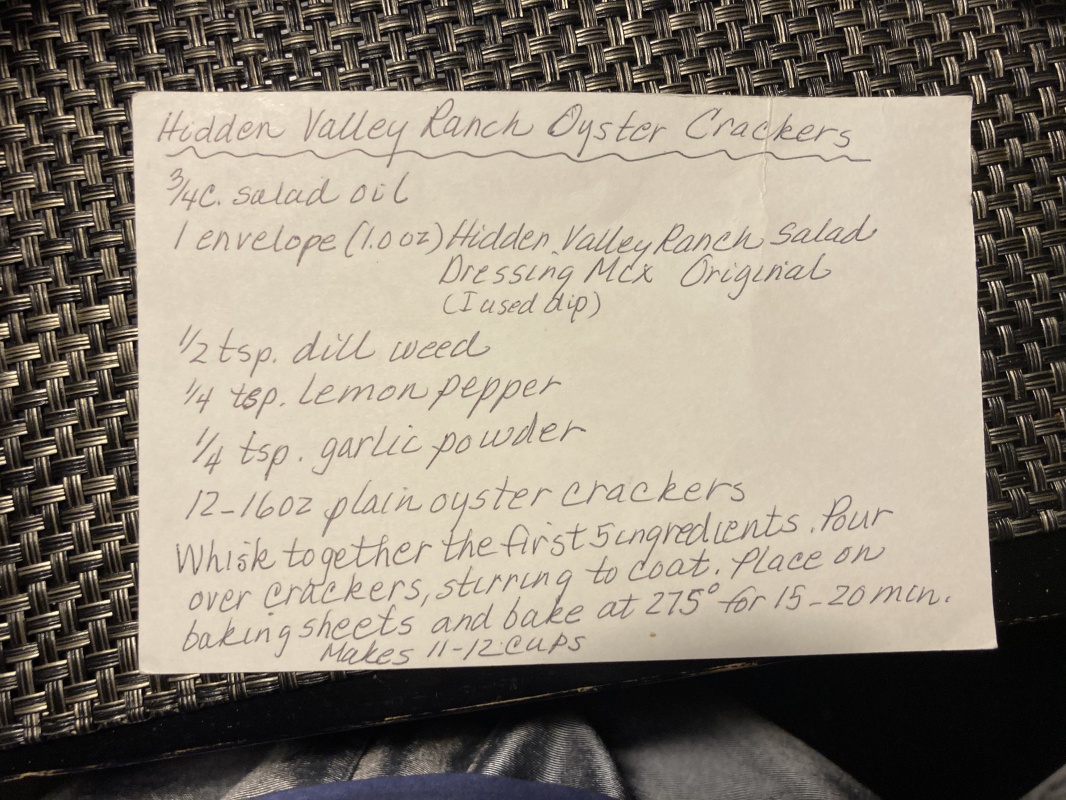 Hidden Valley Ranch Oyster Crackers
3/4 C. salad oil
1 envelope (1.0 oz) Hidden Valley Ranch Salad
Dressing Mix Original
(I used dip)
1/2 tsp. dill weed
1/4 tsp. Lemon pepper
1/4 tsp. garlic powder
12-16oz plain oyster crackers
Whisk together the first 5 ingredients. Pour
over crackers, stirring to coat. Place on
baking sheets and bake at 275° for 15-20 min.
Makes 11-12 cups